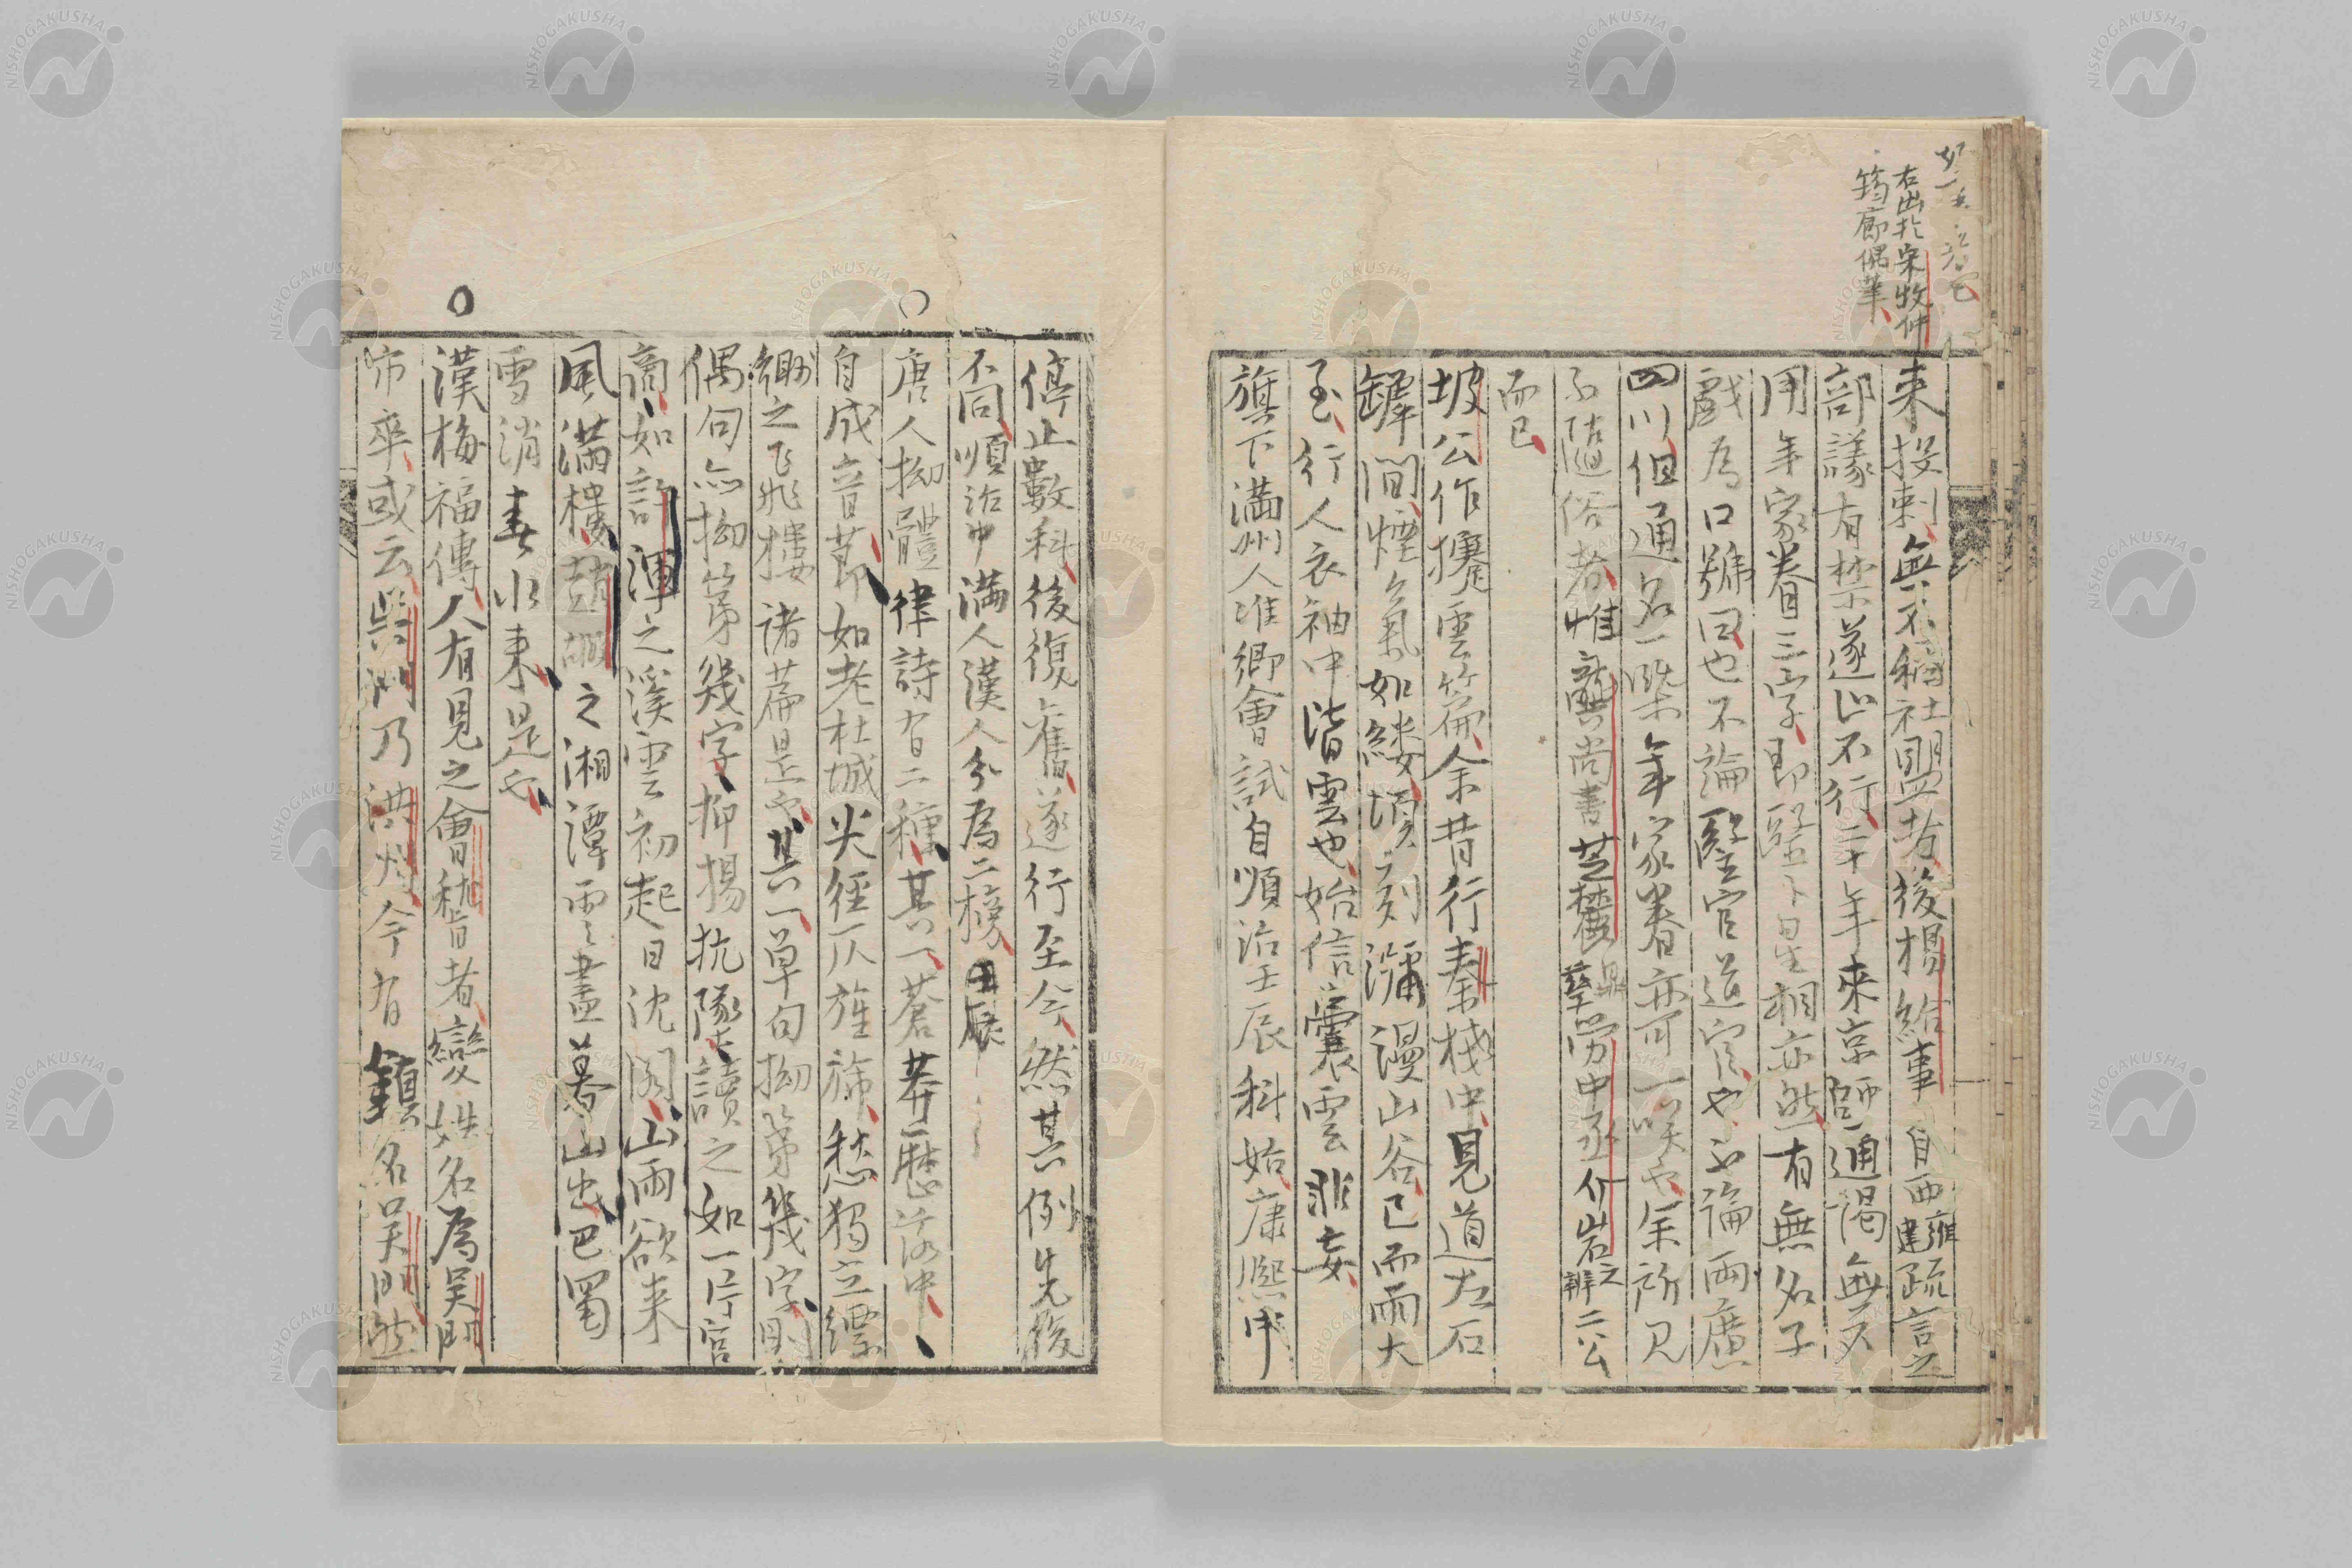 右出於宋牧仲
筠廊偶筆
来投刺無不稱社盟者後楊給事自西雍建疏言之
部議有禁遂止不行二十年来京師通謁無不
用年家眷三字即醫卜星相亦然有無名子
戯為口號曰也不論醫官道官也不論兩廣
四川但通名一槩年家眷亦可一咲也余所見
不随俗者惟龔尚書芝麓鼎孳勞中丞介岩之辨二公
而已
坡公作攓雲篇余昔行秦棧中見道左石
罅間煙氣如縷頃刻瀰漫山谷已而雨大
至行人衣袖中皆雲也始信囊雲非妄
旗下満州人准郷會試自順治壬辰科始康熙中
停止數科後復舊遂行至今然其例先後
不同順治中満人漢人分為二榜
唐人拗體律詩有二種其一蒼莽歴落中
自成音節如老杜城尖径仄旌旆愁獨立縹
緲之飛樓諸篇是也其一單句拗第幾字則
偶句亦拗第幾字抑揚抗墜讀之如一片宮
商如許渾之溪雲初起日沈閣山雨欲来
風満樓趙嘏之湘潭雲盡暮山出巴蜀
雪消春水来是也
漢梅福傳人有見之會稽者變姓名為呉
市卒或云呉門乃洪州今有鎮名呉門然